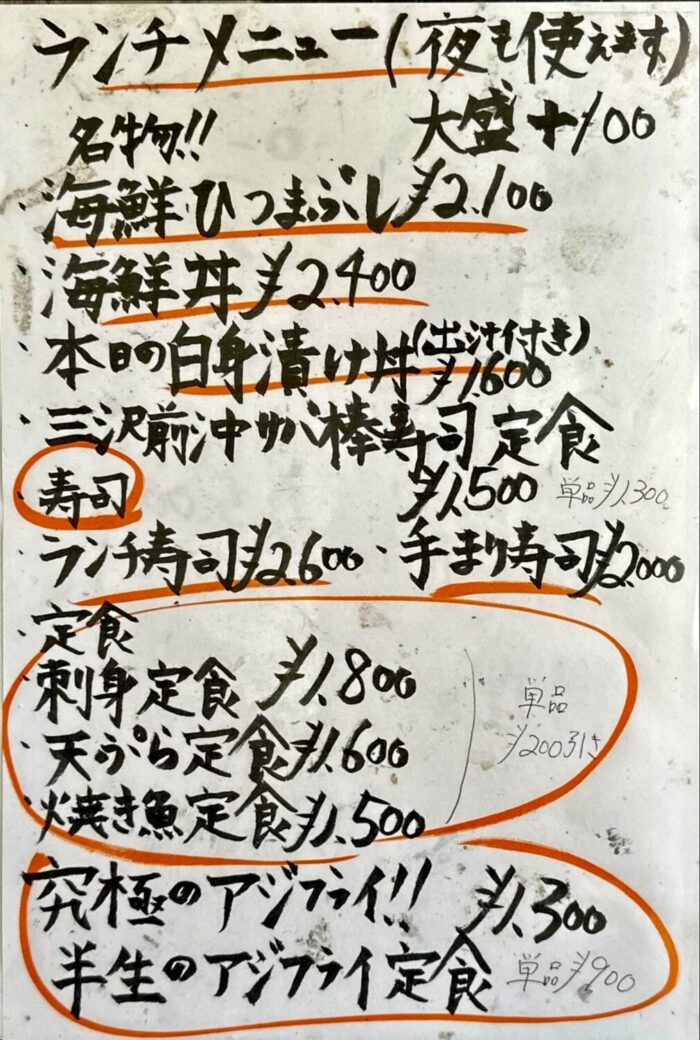 ランチメニュー(夜も使えます)
名物!! 大盛+100
・海鮮ひつまぶし¥2.100
・海鮮丼¥2.400
・本日の白身漬け丼(出汁付き)¥1.600
・三沢前沖サバ棒寿司定食
¥1.500 単品¥1.300
・寿司
・ランチ寿司¥2.600 ・手まり寿司¥2.000
・定食
刺身定食 ¥1.800
・天ぷら定食¥1.600
・焼き魚定食¥1.500
単品
¥200引き
究極のアジフライ!! ¥1.300
半生のアジフライ定食 単品¥900